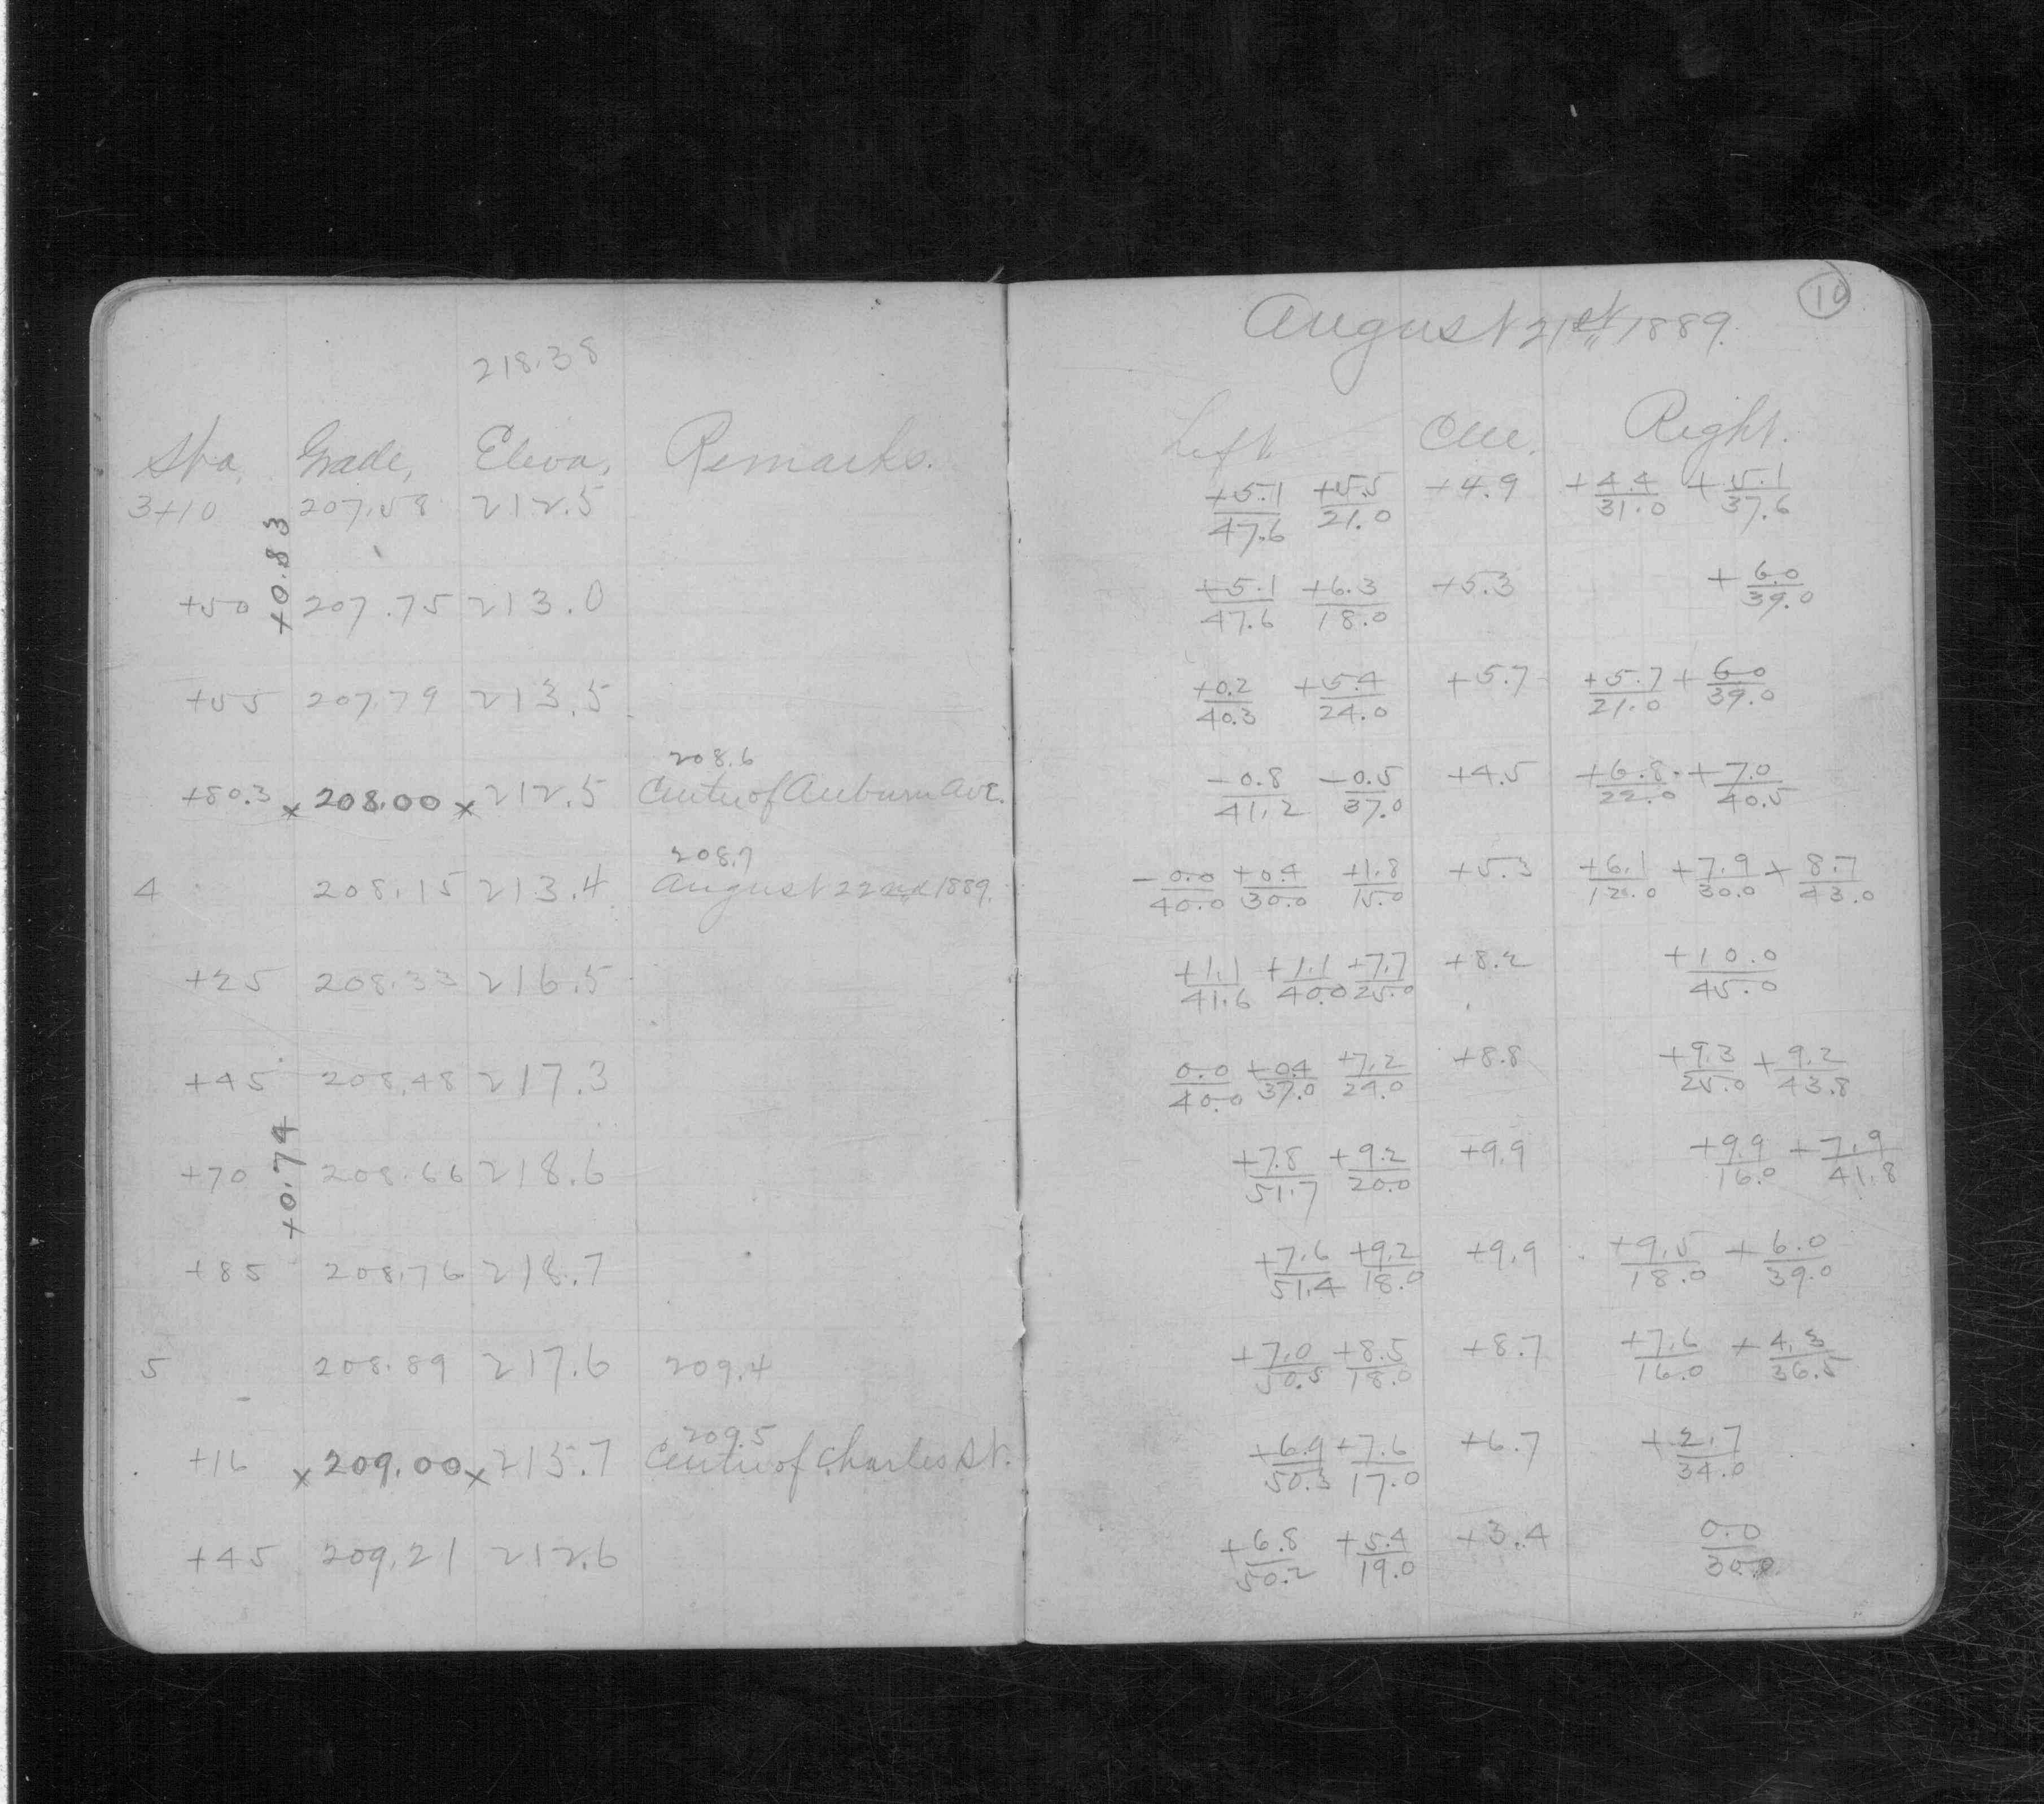 218.38
Sta. Grade, Eleva, Remarks.
3+10 207.58 212.5
+0.83
+50 207.75 213.0
+55 207.79 213.5
208.6
+80.3 x 208.00 x 212.5 Centre of Auburn Ave.
208.7
4 208.15 213.4 August 22nd, 1889.
+25 208.33 216.5
+45 208.48 217.3
+0.74
+70 208.66 218.6
+85 208.76 218.7
5 208.89 217.6 209.4
209.5
+16 x 209.00 x 215.7 Centre of Charles St.
+45 209.21 212.6
10
August 21st, 1889.
Left Cue. Right.
+5.1 +5.5 +4.9 +4.4 +5.1
47.6 21.0 31.0 37.6
+5.1 +6.3 +5.3 +6.0
47.6 18.0 39.0
+0.2 +5.4 +5.7 +5.7 +6.0
40.3 24.0 21.0 39.0
-0.8 -0.5 +4.5 +6.8 +7.0
41.2 37.0 22.0 40.5
-0.0 +0.4 +1.8 +5.3 +6.1 +7.9 +8.7
40.0 30.0 15.0 12.0 30.0 43.0
+1.1 +1.1 +7.7 +8.2 +10.0
41.6 40.0 25.0 45.0
0.0 +0.4 +7.2 +8.8 +9.3 +9.2
40.0 37.0 24.0 25.0 43.8
+7.8 +9.2 +9.9 +9.9 +7.9
51.7 20.0 16.0 41.8
+7.6 +9.2 +9.9 +9.5 +6.0
51.4 18.0 18.0 39.0
+7.0 +8.5 +8.7 +7.6 +4.3
50.5 18.0 16.0 36.5
+6.9 +7.6 +6.7 +2.7
50.3 17.0 34.0
+6.8 +5.4 +3.4 0.0
50.2 19.0 30.0